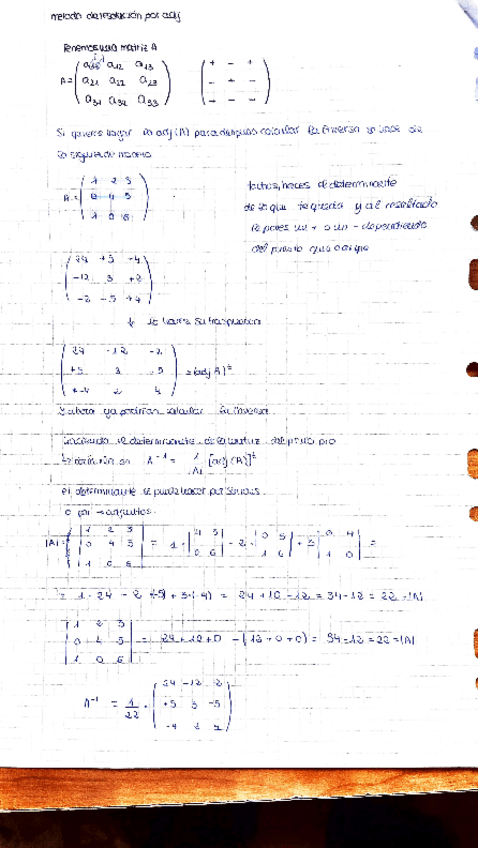 metodo de resolución por adj
Tenemos una matriz A
A = ( a11 a12 a13 ) ( + - + )
( a21 a22 a23 ) ( - + - )
( a31 a32 a33 ) ( + - + )
Si quieres hacer la adj(A) para después calcular la inversa se hace de
la siguiente manera
A = ( 1 2 3 ) tachas, haces el determinante
( 0 4 5 ) de lo que te queda y al resultado
( 1 0 6 ) le pones un + o un - dependiendo
del puesto que ocupe
( 24 +5 -4 )
( -12 3 +2 )
( -2 -5 +4 )
↓ se hace su traspuesta
( 24 -12 -2 )
( +5 3 -5 ) = (adj A)t
( -4 2 4 )
Y ahora ya podrían calcular su inversa
haciendo el determinante de la matriz del principio
A⁻¹ = 1/|A| [adj(A)]t
el determinante se puede hacer por Sarrus
o por → adjuntos.
|A| = | 1 2 3 | = 1 · | 4 5 | - 2 · | 0 5 | + 3 | 0 4 | =
| 0 4 5 | | 0 6 | | 1 6 | | 1 0 |
| 1 0 6 |
= 1 · 24 - 2 (-5) + 3·(-4) = 24 + 10 - 12 = 34 - 12 = 22 = |A|
| 1 2 3 |
| 0 4 5 | = 24 + 10 + 0 - (12 + 0 + 0) = 34 - 12 = 22 = |A|
| 1 0 6 |
A⁻¹ = 1/22 · ( 24 -12 -2 )
( +5 3 -5 )
( -4 2 4 )